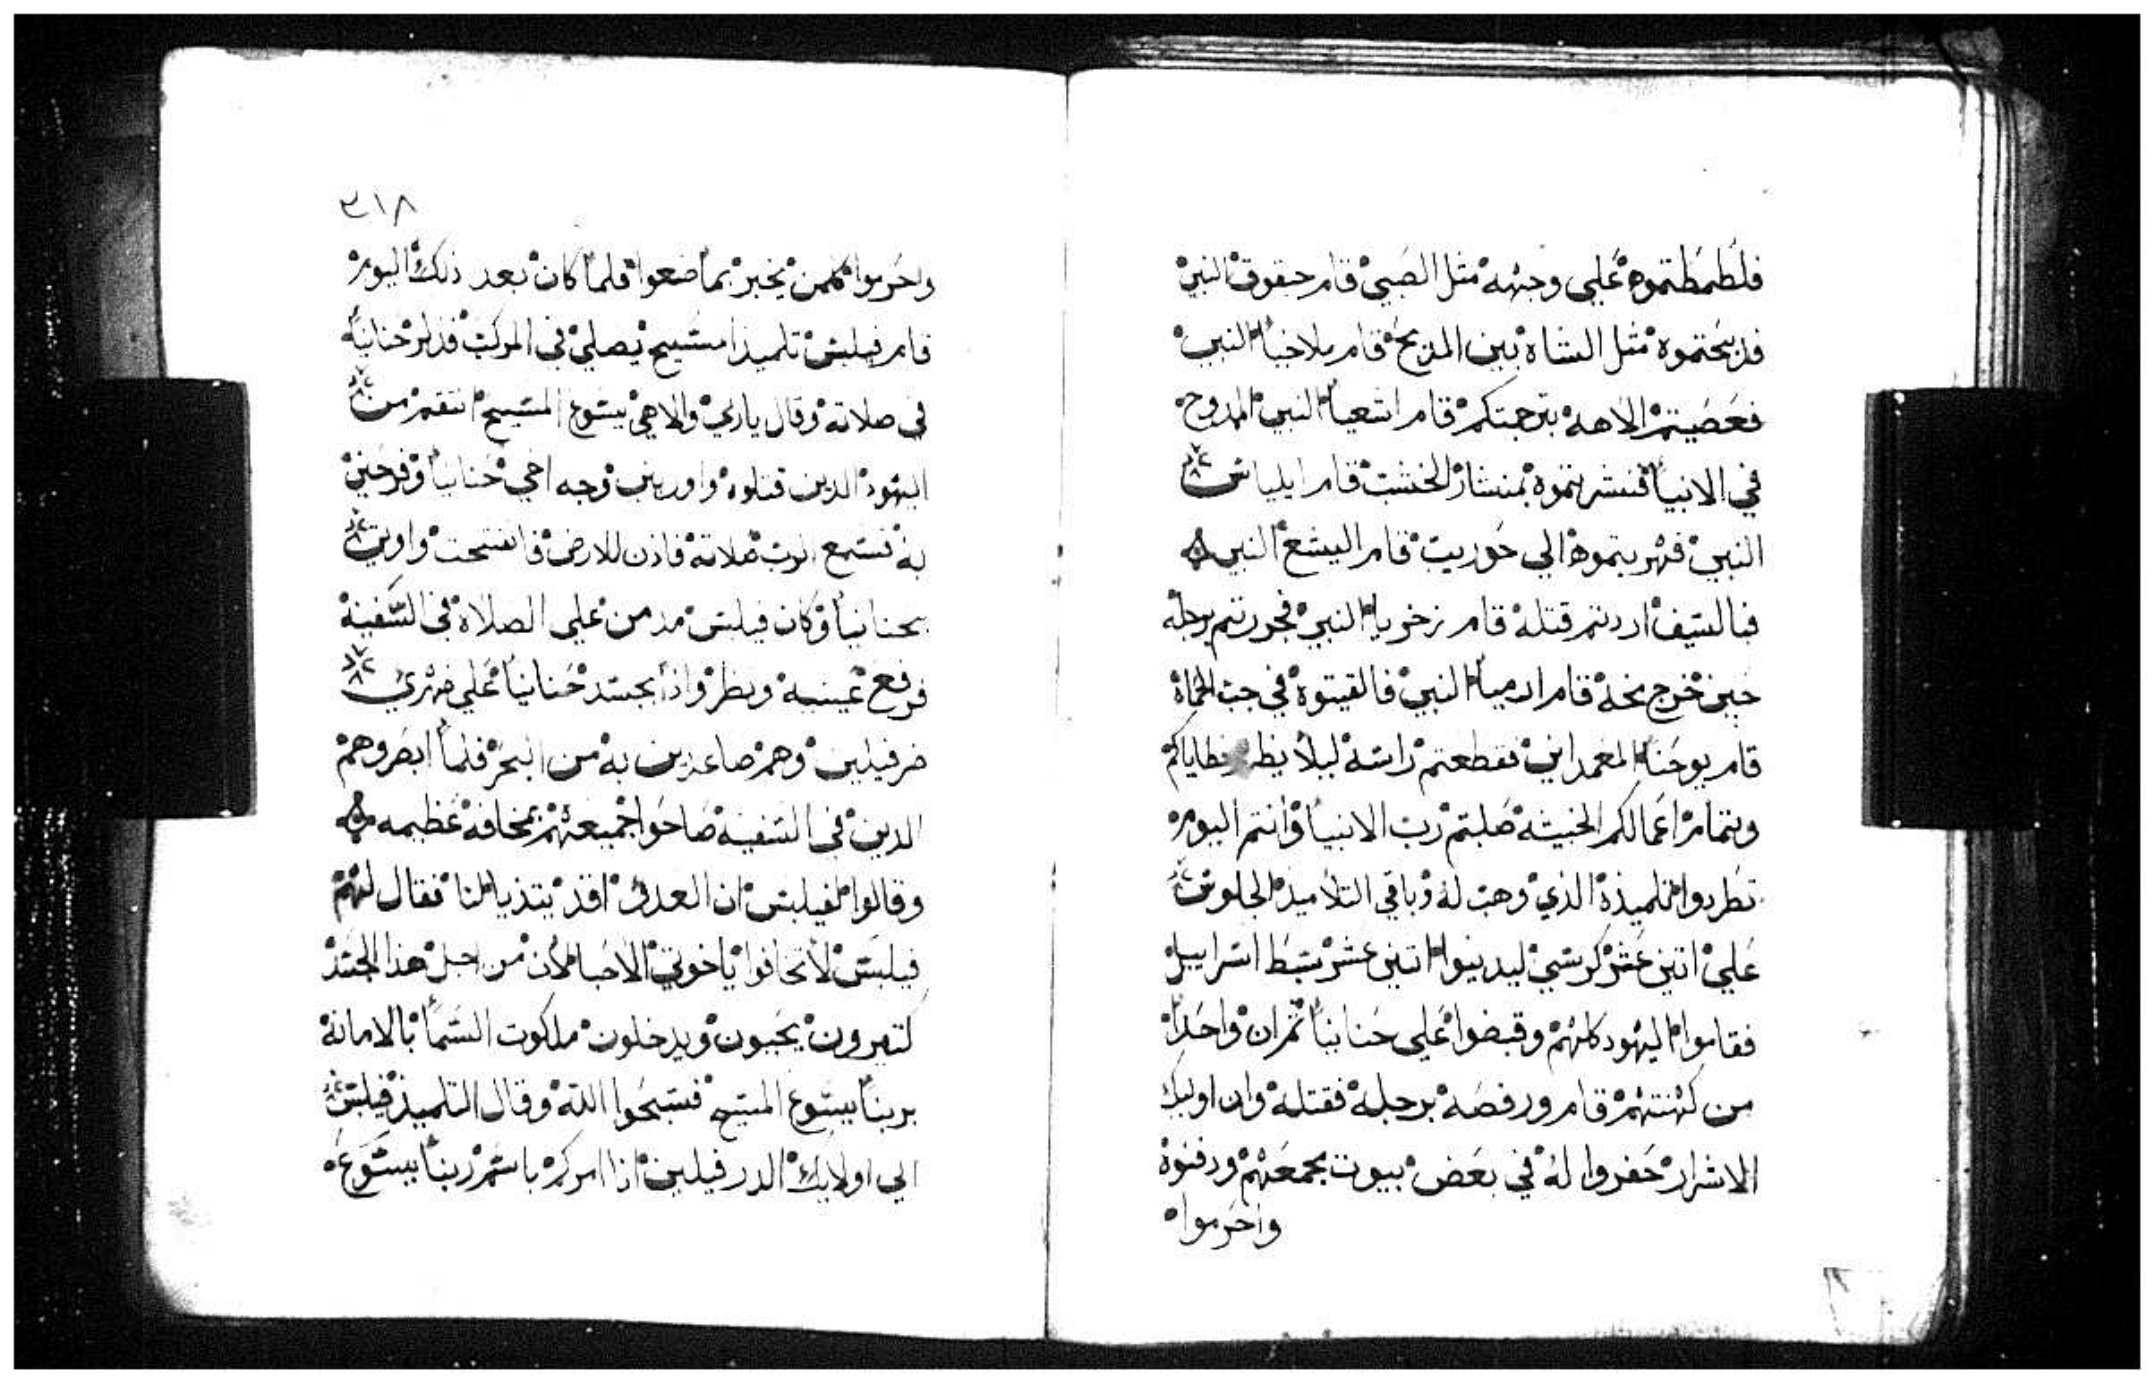 فلطمطتموه علي وجهه مثل الصبي قام حبقوق النبي
فذبحتموه مثل الشاه بين المذبح قام ملاخيا النبي
فعصيتم الاهه بترجمتكم قام اشعيا النبي الممدوح
في الانبيا فنشرتموه بمنشار الخشب قام ايلياس
النبي فهربتموه الي حوريت قام اليشع النبي
فبالسيف اردتم قتله قام زخريا النبي فجورتم برجله
حين خرج قام ارميا النبي فالقيتوه في جب الحماه
قام يوحنا المعمداني فقطعتم راسه ليلا خطاياكم
وتمام اعمالكم الخبيثه صلبتم رب الانبيا وانتم اليوم
تطردوا تلميذه الذي وهب له وباقي التلاميد الجلوس
علي اتنين عشر كرسي ليدينوا اتنين عشر سبط اسراييل
فقاموا اليهود كلهم وقبضوا علي حنانيا ثم ان واحدا
من كهنتهم قام ورفصه برجله فقتله وان اوليك
الاشرار حفروا له في بعض بيوت بجمعهم ودفنوه
واحرموا
٣١٨
واحرموا كلمن يخبر بما صنعوا فلما كان بعد ذلك اليوم
قام فيلبس تلميذ المسيح يصلي في المركب فذكر حنانيا
في صلاته وقال ياربي والاهي يسوع المسيح انتقم من
اليهود الدين قتلوه واوريني وجه اخي حنانيا وفرحني
به فسمع الرب صلاته فاذن للارض فانفتحت واوتي
بحنانيا وكان فيلبس مدمن علي الصلاة في السفينة
فرفع عينيه ونظر واذا بجسد حنانيا علي ضهري
ضرفيلين وهم صاعدين به من البحر فلما ابصروهم
الدين في السفينه صاحوا جميعهم بمخافه عظيمه
وقالوا لفيلبس ان العدو قد يتذيا لنا فقال لهم
فيلبس لا تخافوا ياخوتي الاحبا لان من اجل هذا الجسد
كتيرون يحيون ويدخلون ملكوت السما بالامانة
بربنا يسوع المسيح فسبحوا الله وقال التلميذ فيلبس
الي اولايك الدرفيلين انا امركم باسم ربنا يسوع